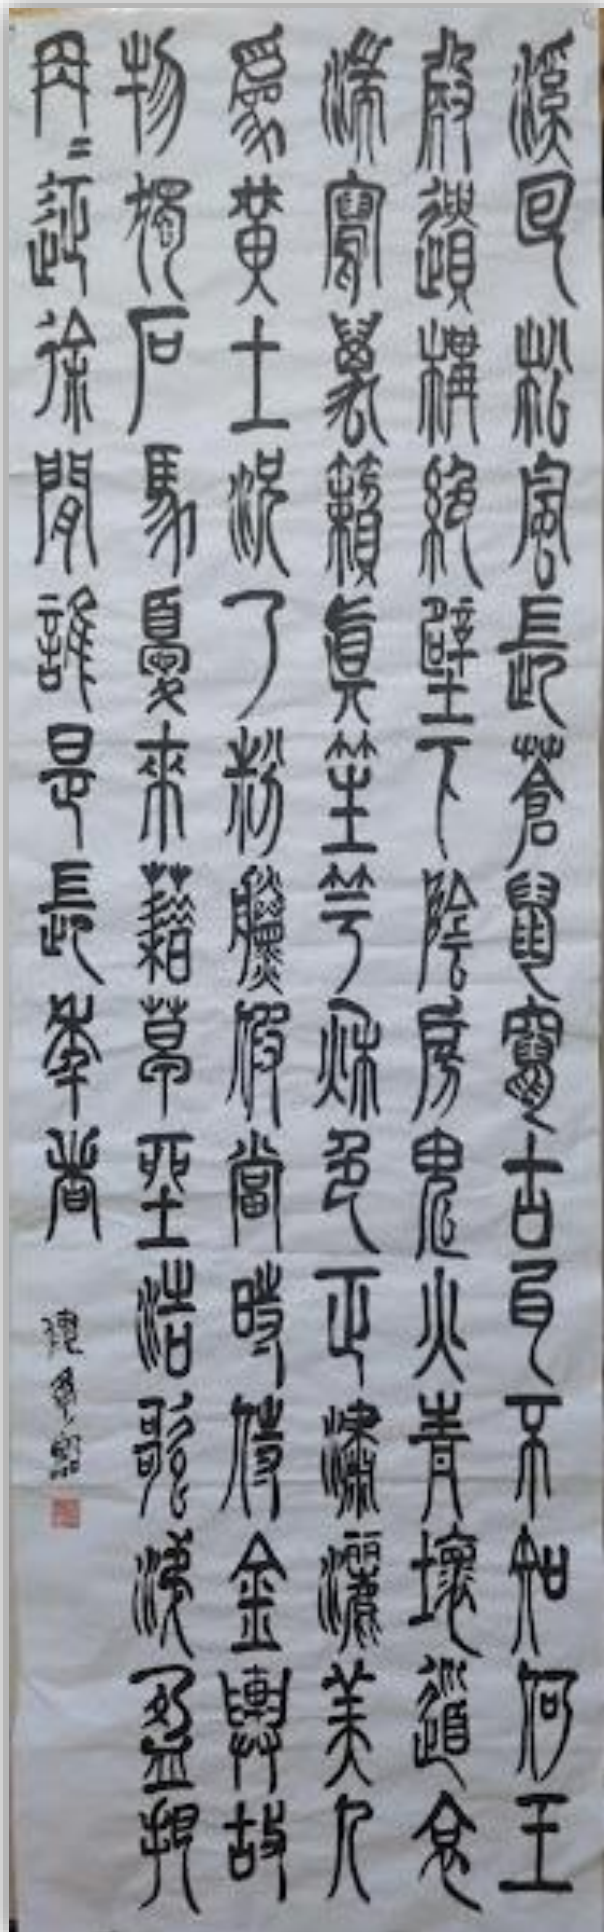 溪回松風長蒼鼠竄古瓦不知何王
殿遺構絕壁下陰房鬼火青壞道哀
湍寫萬籟真笙竽秋色正瀟灑美人
為黃土況乃粉黛假當時侍金輿故
物獨石馬憂來藉草坐浩歌淚盈把
冉〻征途間誰是長年者